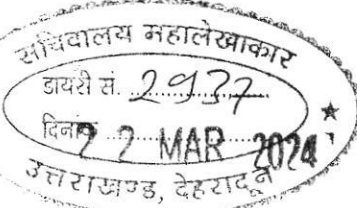 सचिवालय महालेखाकार
डायरी सं. 2937
दिनांक 22 MAR 2024
उत्तराखण्ड, देहरादून